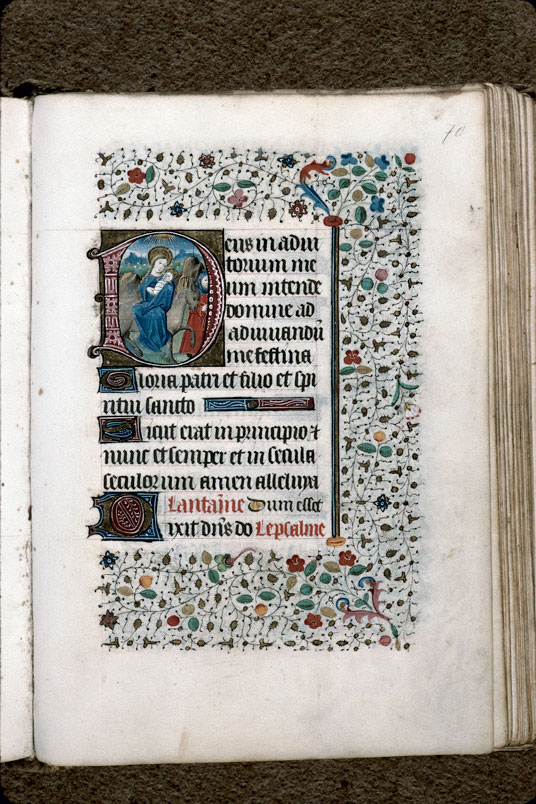 70
Deus in adiu
torium me
um intende
domine ad
adiuuandū
me festina
Gloria patri et filio et spi
ritui sancto
Sicut erat in principio ⁊
nunc et semper et in secula
seculorum amen alleluya
Lantāīne Dum esset
Dixit dn̄s do Le psalme